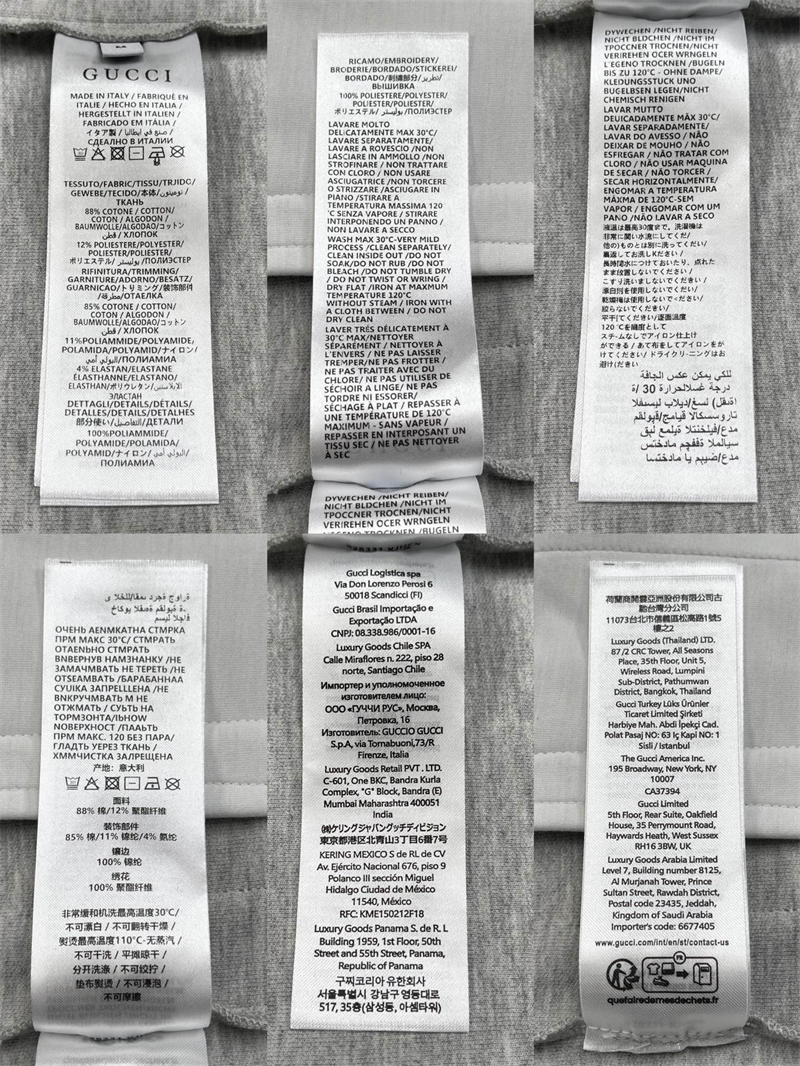 M
GUCCI
MADE IN ITALY / FABRIQUÉ EN
ITALIE / HECHO EN ITALIA /
HERGESTELLT IN ITALIEN /
FABRICADO EM ITÁLIA /
イタア製 / صنع في ايطاليا /
СДЕЛАНО В ИТАЛИИ
TESSUTO/FABRIC/TISSU/TRJIDO/
GEWEBE/TECIDO/本体/نوميتون/
ТКАНЬ
88% COTONE / COTTON/
COTON / ALGODON /
BAUMWOLLE/ALGODAO/コットン
قطن / ХЛОПОК
12% POLIESTERE/POLYESTER/
POLYESTER/POLIESTER/
ポリエステル/بوليستر/ПОЛИЭСТЕР
RIFINITURA/TRIMMING/
GARNITURE/ADORNO/BESATZ/
GUARNICAO/トリミング/装饰部件
/مطرقة/ОТАЕЛКА
85% COTONE / COTTON/
COTON / ALGODON /
BAUMWOLLE/ALGODAO/コットン
قطن / ХЛОПОК
11%POLIAMMIDE/POLYAMIDE/
POLAMIDA/POLYAMID/ナイロン/
البولي أمي/ПОЛИАМИА
4% ELASTAN/ELASTANE
ÉLASTHANNE/ELASTANO/
ELASTHAN/ポリウレタン/الايلاستين/
ЭЛАСТАН
DETTAGLI/DETAILS/DÉTAILS/
DETALLES/DETAILS/DETALHES
部分使い/التفاصيل/ДЕТАЛИ
100%POLIAMMIDE/
POLYAMIDE/POLAMIDA/
POLYAMID/ナイロン/البولي أمي/
ПОЛИАМИА
RICAMO/EMBROIDERY/
BRODERIE/BORDADO/STICKEREI/
BORDADO/刺繍部分/تطريز/
ВЫШИВКА
100% POLIESTERE/POLYESTER/
POLYESTER/POLIESTER/
ポリエステル/بوليستر/ПОЛИЭСТЕР
LAVARE MOLTO
DELICATAMENTE MAX 30°C/
LAVARE SEPARATAMENTE/
LAVARE A ROVESCIO /NON
LASCIARE IN AMMOLLO /NON
STROFINARE / NON TRATTARE
CON CLORO / NON USARE
ASCIUGATRICE /NON TORCERE
O STRIZZARE /ASCIUGARE IN
PIANO /STIRARE A
TEMPERATURA MASSIMA 120
°C SENZA VAPORE / STIRARE
INTERPONENDO UN PANNO /
NON LAVARE A SECCO
WASH MAX 30°C-VERY MILD
PROCESS /CLEAN SEPARATELY/
CLEAN INSIDE OUT /DO NOT
SOAK/DO NOT RUB /DO NOT
BLEACH /DO NOT TUMBLE DRY
/ DO NOT TWIST OR WRING /
DRY FLAT /IRON AT MAXMUM
TEMPERATURE 120°C
WITHOUT STEAM / IRON WITH
A CLOTH BETWEEN / DO NOT
DRY CLEAN
LAVER TRÉS DÉLICATEMENT À
30°C MAX/NETTOYER
SÉPARÉMENT / NETTOYER À
L'ENVERS / NE PAS LAISSER
TREMPER/NE PAS FROTTER /
NE PAS TRAITER AVEC DU
CHLORE/ NE PAS UTILISER DE
SÉCHOIR A LINGE/ NE PAS
TORDRE NI ESSORER/
SÉCHAGE À PLAT / REPASSER À
UNE TEMPÉRATURE DE 120°C
MAXIMUM - SANS VAPEUR /
REPASSER EN INTERPOSANT UN
TISSU SEC / NE PAS NETTOYER
À SEC
DYWECHEN /NICHT REIBEN/
NICHT BLDCHEN /NICHT IM
TPOCCNER TROCNEN/NICHT
VERIREHEN OCER WRNGELN
L'EGENO TROCNEN /BUGELN
DYWECHEN /NICHT REIBEN/
NICHT BLDCHEN /NICHT IM
TPOCCNER TROCNEN/NICHT
VERIREHEN OCER WRNGELN
L'EGENO TROCNEN /BUGELN
BIS ZU 120°C - OHNE DAMPE/
KLEDUNGSSTUCK UND
BUGELBSEN LEGEN/NICHT
CHEMISCH RENIGEN
LAVAR MUTTO
DEUICADAMENTE MÀX 30°C/
LAVAR SEPARADAMENTE/
LAVAR DO AVESSO / NÃO
DEIXAR DE MOUHO / NÃO
ESFREGAR / NÃO TRATAR COM
CLORO / NÃO USAR MAQUINA
DE SECAR / NÃO TORCER /
SECAR HORIZONTALMENTE/
ENGOMAR A TEMPERATURA
MÀXMA DE 120°C-SEM
VAPOR / ENGOMAR COM UM
PANO /NÃO LAVAR A SECO
液温は最高30度まで。洗濯機は
非常に関い水流にしてくだ/
他)のものとは別に洗ってくたい/
裏返してお洗しKださい/
長時降水につけておいたり、点れた
まま放置しないでください/
こすり洗いましないでください/
漂白剤を使用しないでくだい/
乾燥機は使用しないで<ださい/
絞らないでください/
平干にてください/逐面温度
120 ℃を緯度として
ステ-ムなしでアイロン仕上げ
ができる / あて布をしてアイロンをか
けてください/ ドライクリ-ニングはお
避け(ださい
ОЧЕНЬ АЕNМКАТНА СТМРКА
ПРМ МАКС 30°С/ СТМРАТЬ
ОТАЕNЬНО СТМРАТЬ
ВNВЕРNУВ НАМЗНАНКУ /НЕ
ЗАМАЧМВАТЬ НЕ ТЕРЕТЬ /НЕ
ОТSЕАМВАТЬ /БАРАБАННАА
СУLІКА ЗАПРЕLLЕНА /НЕ
ВNКРУЧМВАТЬ М НЕ
ОТЖМАТЬ / СУБТЬ НА
ТОРМЗОНТА/IЬНОW
NОВЕРХНОСТ /ПААЬТЬ
ПРМ МАКС. 120 БЕЗ ПАРА/
ГЛАДТЬ УЕРЕЗ ТКАНЬ /
ХММЧИСТКА ЗАЛРЕЩЕНА
产地：意大利
面料
88% 棉/12% 聚酯纤维
装饰部件
85% 棉/11% 锦纶/4% 氨纶
镶边
100% 锦纶
绣花
100% 聚酯纤维
非常缓和机洗最高温度30℃/
不可漂白 / 不可翻转干燥 /
熨烫最高温度110℃-无蒸汽 /
不可干洗 / 平摊晾干 /
分开洗涤 / 不可绞拧 /
垫布熨烫 / 不可浸泡 /
不可摩擦
Gucci Logistica spa
Via Don Lorenzo Perosi 6
50018 Scandicci (FI)
Gucci Brasil Importação e
Exportação LTDA
CNPJ: 08.338.986/0001-16
Luxury Goods Chile SPA
Calle Miraflores n. 222, piso 28
norte, Santiago Chile
Импортер и уполномоченное
изготовителем лицо:
ООО «ГУЧЧИ РУС», Москва,
Петровка, 16
Изготовитель: GUCCIO GUCCI
S.p.A, via Tornabuoni,73/R
Firenze, Italia
Luxury Goods Retail PVT . LTD.
C-601, One BKC, Bandra Kurla
Complex, "G" Block, Bandra (E)
Mumbai Maharashtra 400051
India
㈱ケリングジャパングッチディビジョン
東京都港区北青山3丁目6番7号
KERING MEXICO S de RL de CV
Av. Ejército Nacional 676, piso 9
Polanco III sección Miguel
Hidalgo Ciudad de México
11540, México
RFC: KME150212F18
Luxury Goods Panama S. de R. L
Building 1959, 1st Floor, 50th
Street and 55th Street, Panama,
Republic of Panama
구찌코리아 유한회사
서울특별시 강남구 영동대로
517, 35층(삼성동, 아셈타워)
荷蘭商開雲亞洲股份有限公司古
馳台灣分公司
11073台北市信義區松高路1號5
樓之2
Luxury Goods (Thailand) LTD.
87/2 CRC Tower, All Seasons
Place, 35th Floor, Unit 5,
Wireless Road, Lumpini
Sub-District, Pathumwan
District, Bangkok, Thailand
Gucci Turkey Lüks Ürünler
Ticaret Limited Şirketi
Harbiye Mah. Abdi İpekçi Cad.
Polat Pasaj NO: 63 Iç Kapi NO: 1
Sisli / Istanbul
The Gucci America Inc.
195 Broadway, New York, NY
10007
CA37394
Gucci Limited
5th Floor, Rear Suite, Oakfield
House, 35 Perrymount Road,
Haywards Heath, West Sussex
RH16 3BW, UK
Luxury Goods Arabia Limited
Level 7, Building number 8125,
Al Murjanah Tower, Prince
Sultan Street, Rawdah District,
Postal code 23435, Jeddah,
Kingdom of Saudi Arabia
Importer's code: 6677405
www.gucci.com/int/en/st/contact-us
FR
quefairedemesdechets.fr